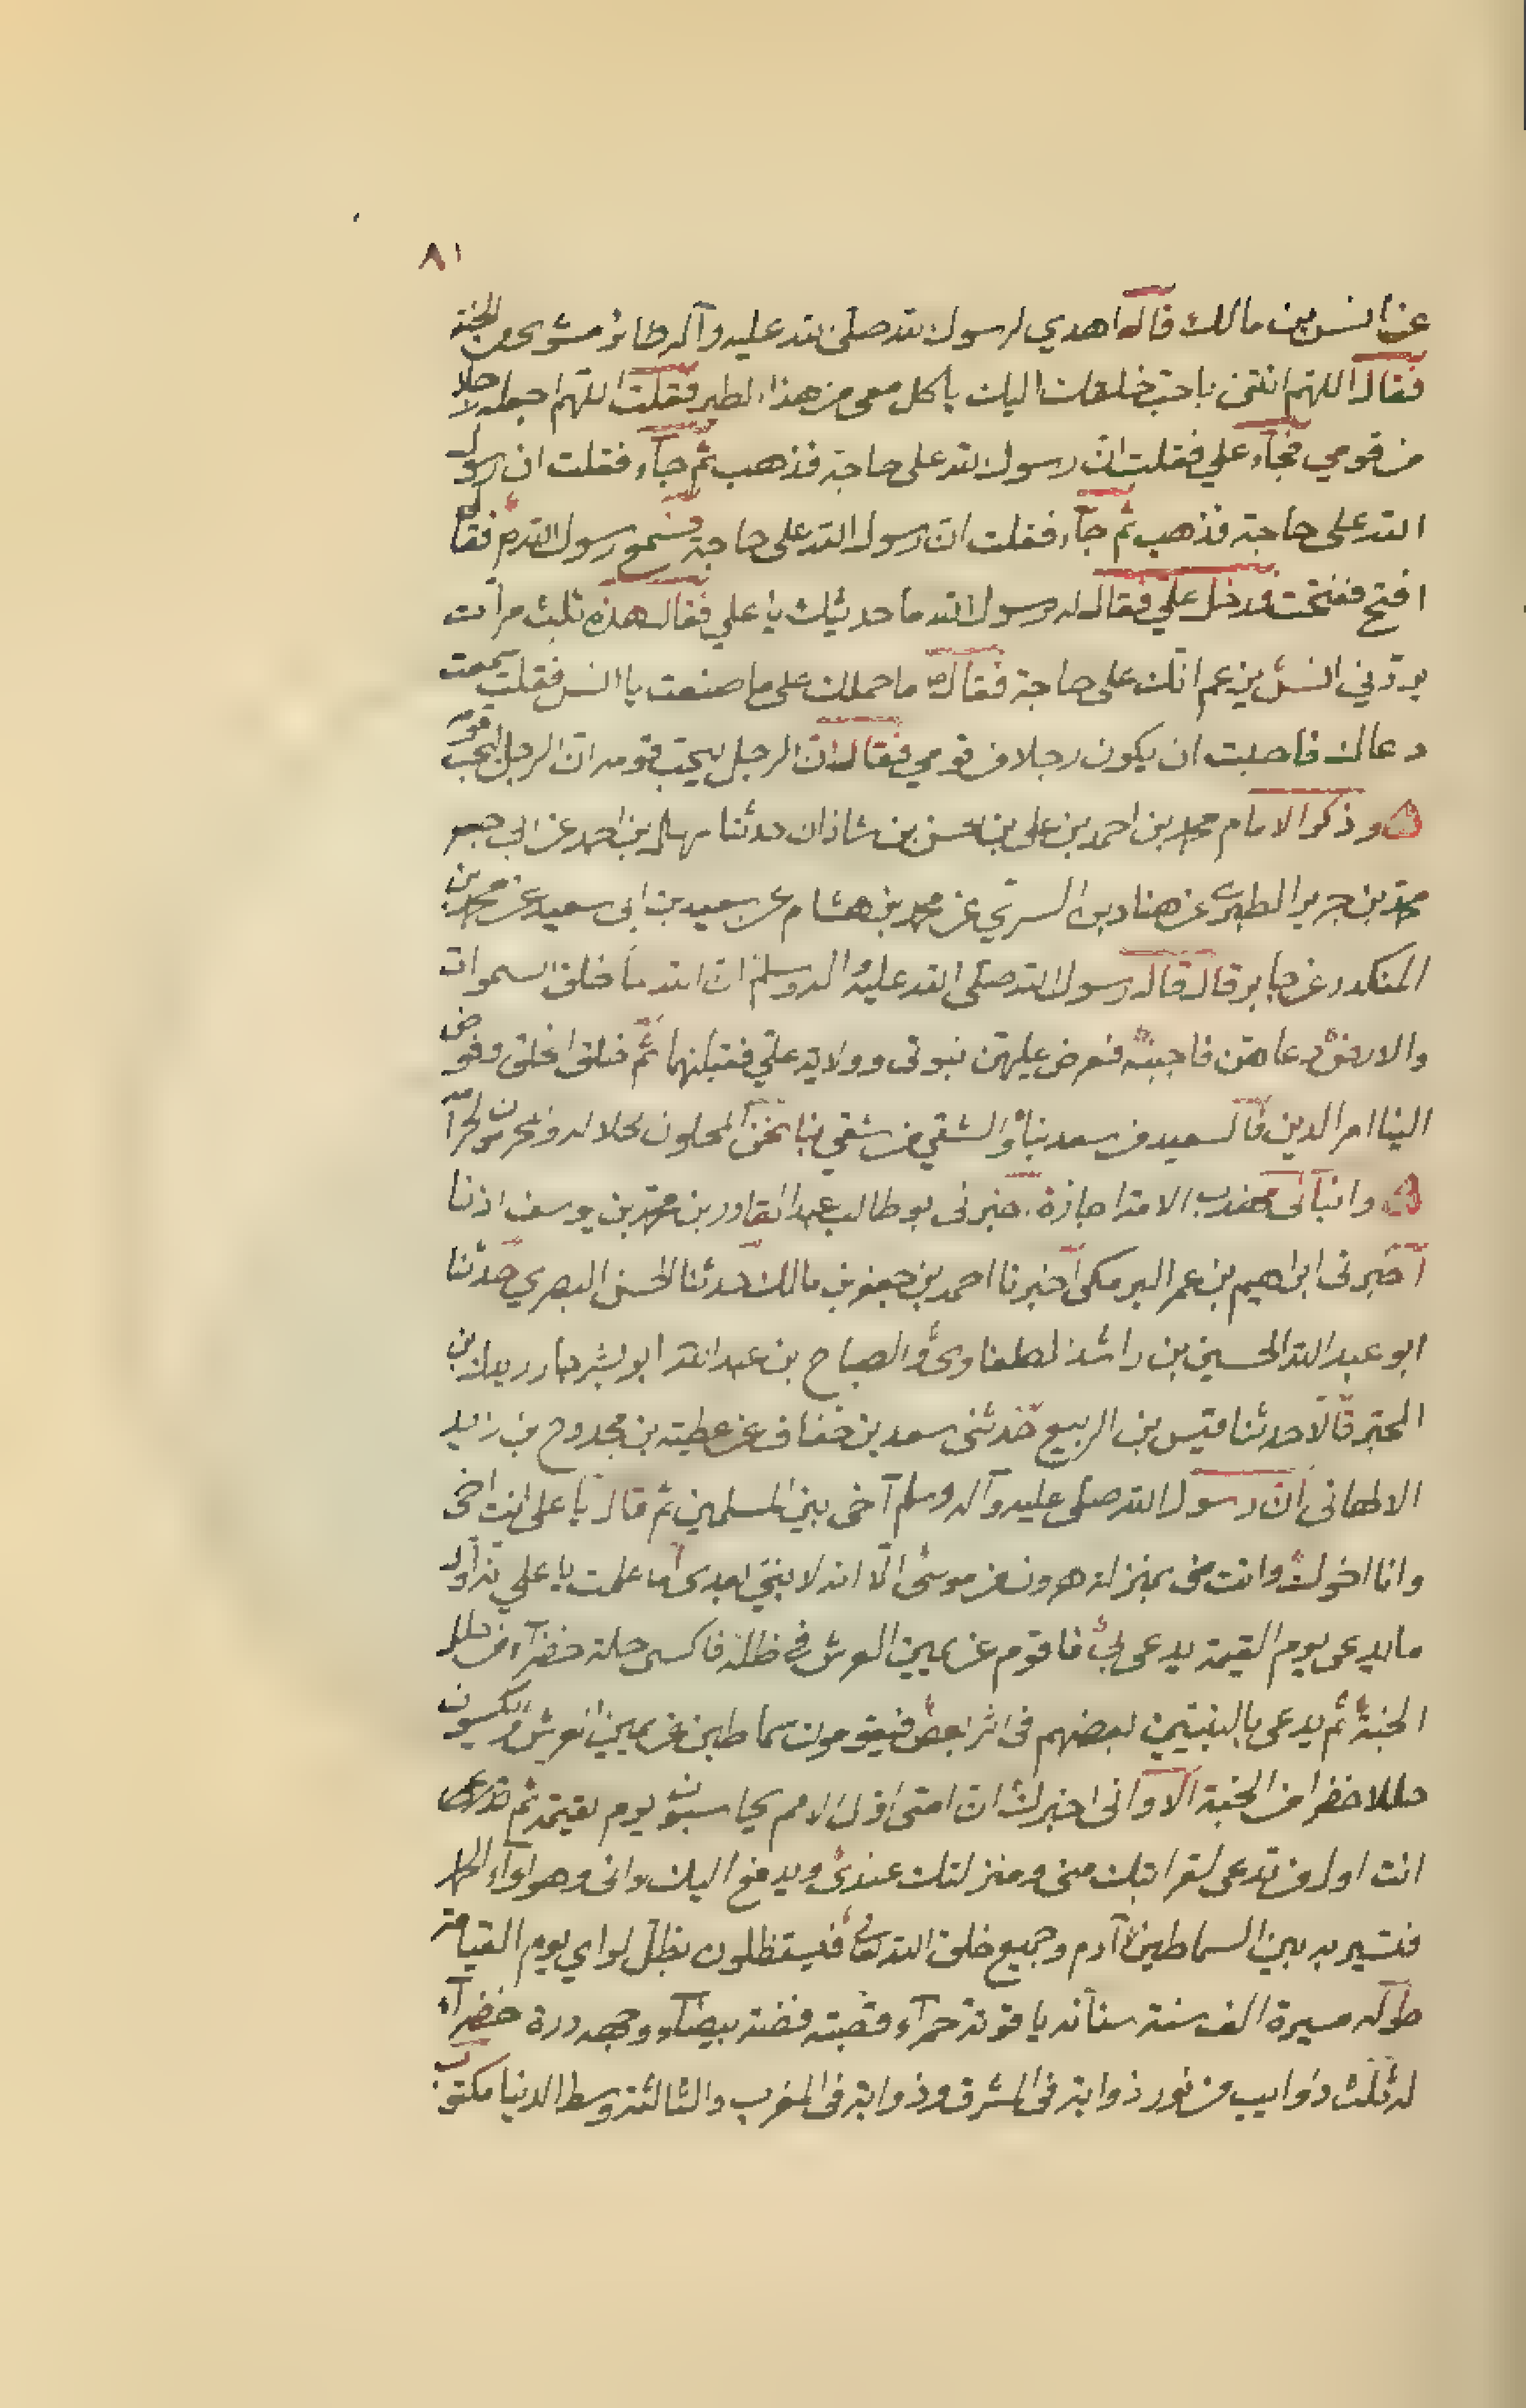 ٨١
عن انس بن مالك قال اهدي لرسول الله صلى الله عليه وآله طائر مشوي من الجنة
فقال اللهم ائتني باحب خلقك اليك ياكل معي من هذا الطير فقلت اللهم اجعله رجلا
من قومي فجآء علي فقلت ان رسول الله على حاجة فذهب ثم جآء فقلت ان رسول
الله على حاجة فذهب ثم جآء فقلت ان رسول الله على حاجة فسمع رسول الله فقال
افتح ففتحت فدخل علي فقال له رسول الله ما حديثك يا علي فقال هذه ثلث مرات
يردني انس يزعم انك على حاجة فقال ما حملك على ما صنعت يا انس فقلت سمعت
دعاك فاحببت ان يكون رجلا من قومي فقال ان الرجل يحب قومه ان الرجل يحب قومه
وذكر الامام محمد بن احمد بن علي بن الحسن بن شاذان حدثنا سهل بن احمد عن ابي جعفر
محمد بن جرير الطبري عن هناد بن السري عن محمد بن هشام عن سعيد بن ابي سعيد عن محمد بن
المنكدر عن جابر قال قال رسول الله صلى الله عليه واله وسلم ان الله لما خلق السموات
والارض دعاهن فاجبنه فعرض عليهن نبوتي وولاية علي فقبلتهما ثم خلق الخلق وفوض
الينا امر الدين فالسعيد من سعد بنا والشقي من شقي بنا نحن المحلون لحلاله ونحن المحرمون لحرامه
وانبأني مهذب الائمة اجازة اخبرني ابو طالب عبد القادر بن محمد بن يوسف اذنا
اخبرني ابراهيم بن عمر البرمكي اخبرنا احمد بن جعفر بن مالك حدثنا الحسن البصري حدثنا
ابو عبد الله الحسين بن راشد الطفاوي والصباح بن عبد الله ابو بشر جار بدل بن
المحبر قالا حدثنا قيس بن الربيع حدثني سعد بن خفاف عن عطية بن مجدوح بن زيد
الالهاني ان رسول الله صلى عليه وآله وسلم آخى بين المسلمين ثم قال يا علي انت اخي
وانا اخوك وانت مني بمنزلة هرون من موسى الا انه لا نبي بعدي اما علمت يا علي انه اول
ما يدعى يوم القيمة يدعى بي فاقوم عن يمين العرش في ظله فاكسى حلة خضرآء من حلل
الجنة ثم يدعى بالنبيين بعضهم في اثر بعض فيقومون سماطين عن يمين العرش ويكسون
حللا خضرا من الجنة الا واني اخبرك ان امتي اول الامم يحاسبون يوم القيمة ثم
انت اول من تدعى لقرابتك مني ومنزلتك عندي ويدفع اليك لوائي وهو لوآء الحمد
فتسير به بين السماطين آدم وجميع خلق الله تعالى فيستظلون بظل لواي يوم القيامة
طوله مسيرة الف سنة سنانه ياقوتة حمرآء قصبته فضة بيضآء وجهه درة خضرآء
له ثلث ذوايب من نور ذوابة في المشرق وذوابة في المغرب والثالثة وسط الدنيا مكتوب